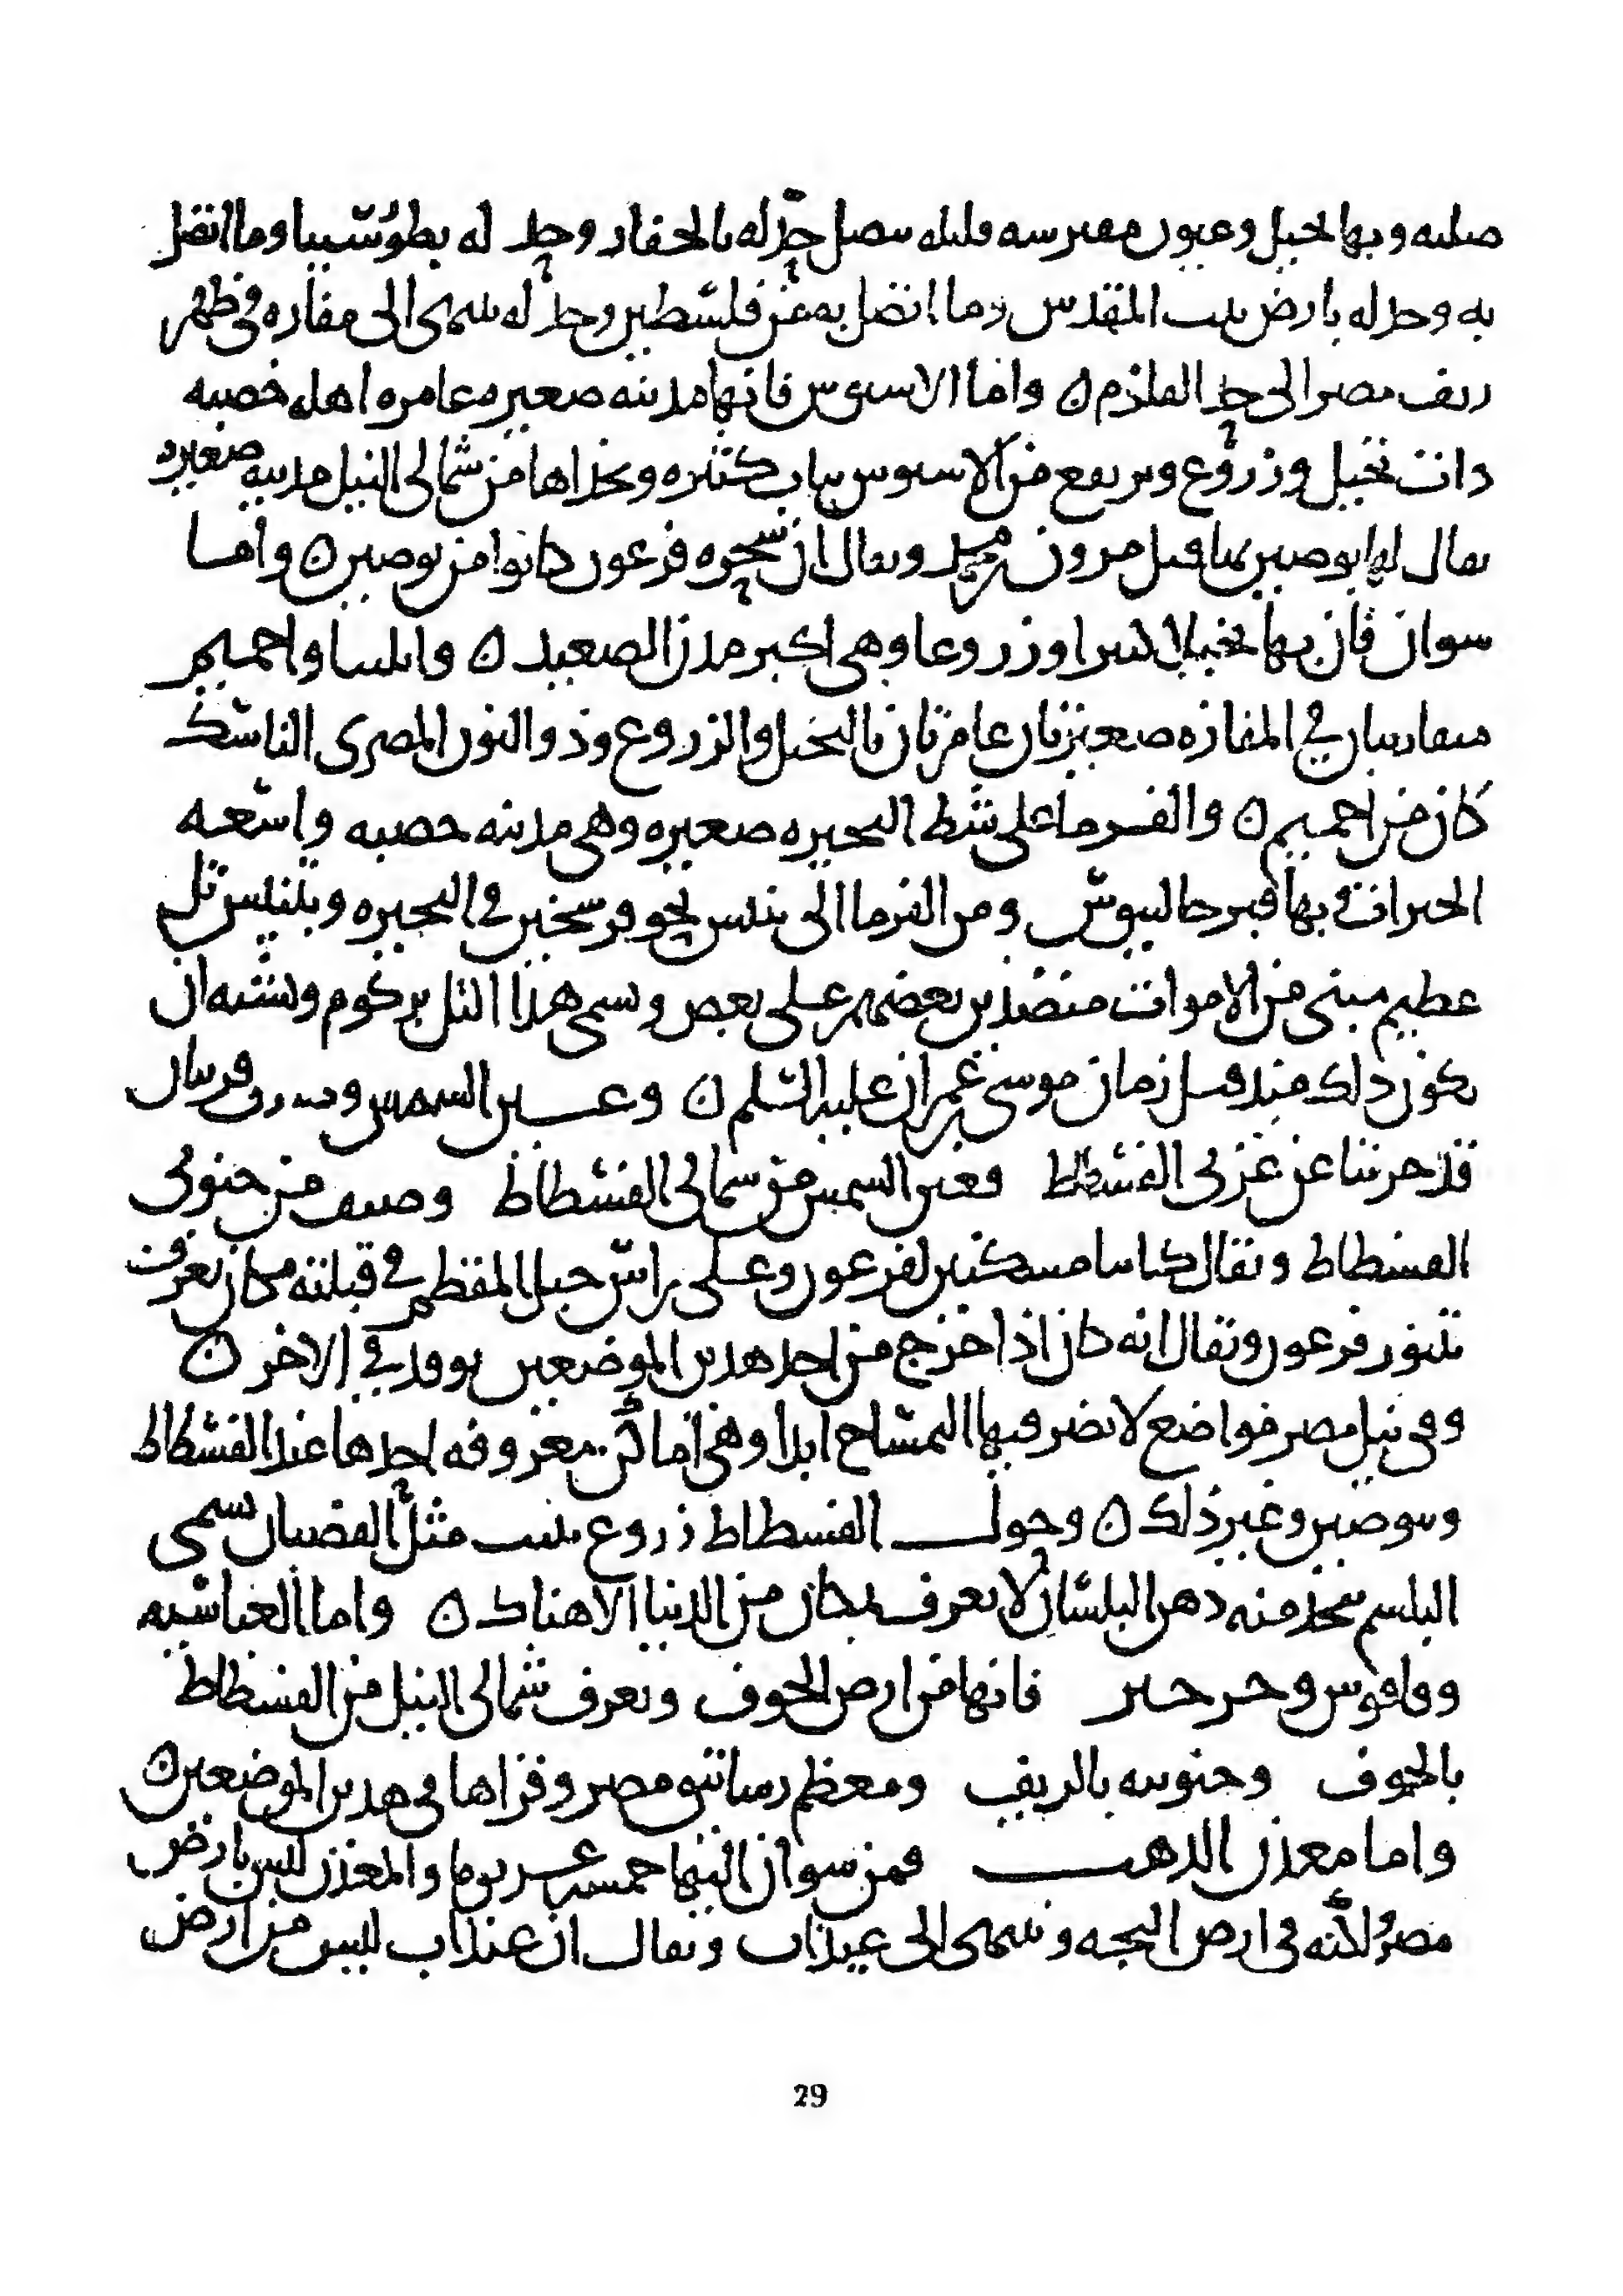 صلبه وبها نخيل وعيون مفترشه قليله يتصل حد له بالجفار وحد له بطور سينا وما اتصل
به وحد له بارض بيت المقدس وما اتصل به من فلسطين وحد له ينتهى الى مفازه فى ظهر
ريف مصر الى حد القلزم ن واما الاسموس فانها مدينه صغيره عامره اهله خصبه
ذات نخيل وزروع ويرتفع من الاسموس ثياب كثيره وبحذاها من شمالى النيل مدينه صغيره
يقال لها بوصير بها قتل مرون بن محمد ويقال ان سحره فرعون كانوا من بوصير ن واما
سوان فان بها نخيلا كثيرا وزروعا وهى اكبر مدن الصعيد ن وابلسا واخميم
متقاربتان في المفازه صغيرتان عامرتان بالنخيل والزروع وذو النون المصرى الناسك
كان من اخميم ن والفرما على شط البحيره صغيره وهى مدينه خصبه واسعه
الخيرات وبها قبر جالينوس ومن الفرما الى تنيس نحو فرسخين في البحيره وبتنيس تل
عظيم مبنى من الاموات منضدين بعضهم على بعض وسمى هذا التل بركوم ويشبه ان
يكون ذلك منذ قبل زمان موسى بن عمران عليه السلم ن وعين الشمس ومنف قريتان
قد خربتا عن غربى الفسطاط فعين الشمس من شمالى الفسطاط ومنف من جنوبى
الفسطاط ويقال كانتا مسكنين لفرعون وعلى راس جبل المقطم في قبلته مكان يعرف
بتنور فرعون ويقال انه كان اذا خرج من احد هذين الموضعين يوقد في الاخر ن
وفى نيل مصر مواضع لا يضر فيها التمساح ابدا وهى اماكن معروفه احدها عند الفسطاط
وبوصير وغير ذلك ن وحول الفسطاط زروع ينبت مثل القضبان يسمى
البلسم يتخذ منه دهن البلسان لا يعرف بمكان من الدنيا الا هناك ن واما العباسيه
وفاقوس وجرجير فانها من ارض الحوف ويعرف شمالى النيل من الفسطاط
بالحوف وجنوبيه بالريف ومعظم رساتيق مصر وقراها في هذين الموضعين ن
واما معدن الذهب فمن سوان اليها خمسه عشر يوما والمعدن ليس بارض
مصر لكنه فى ارض البجه وينتهى الى عيذاب ويقال ان عيذاب ليس من ارض
29